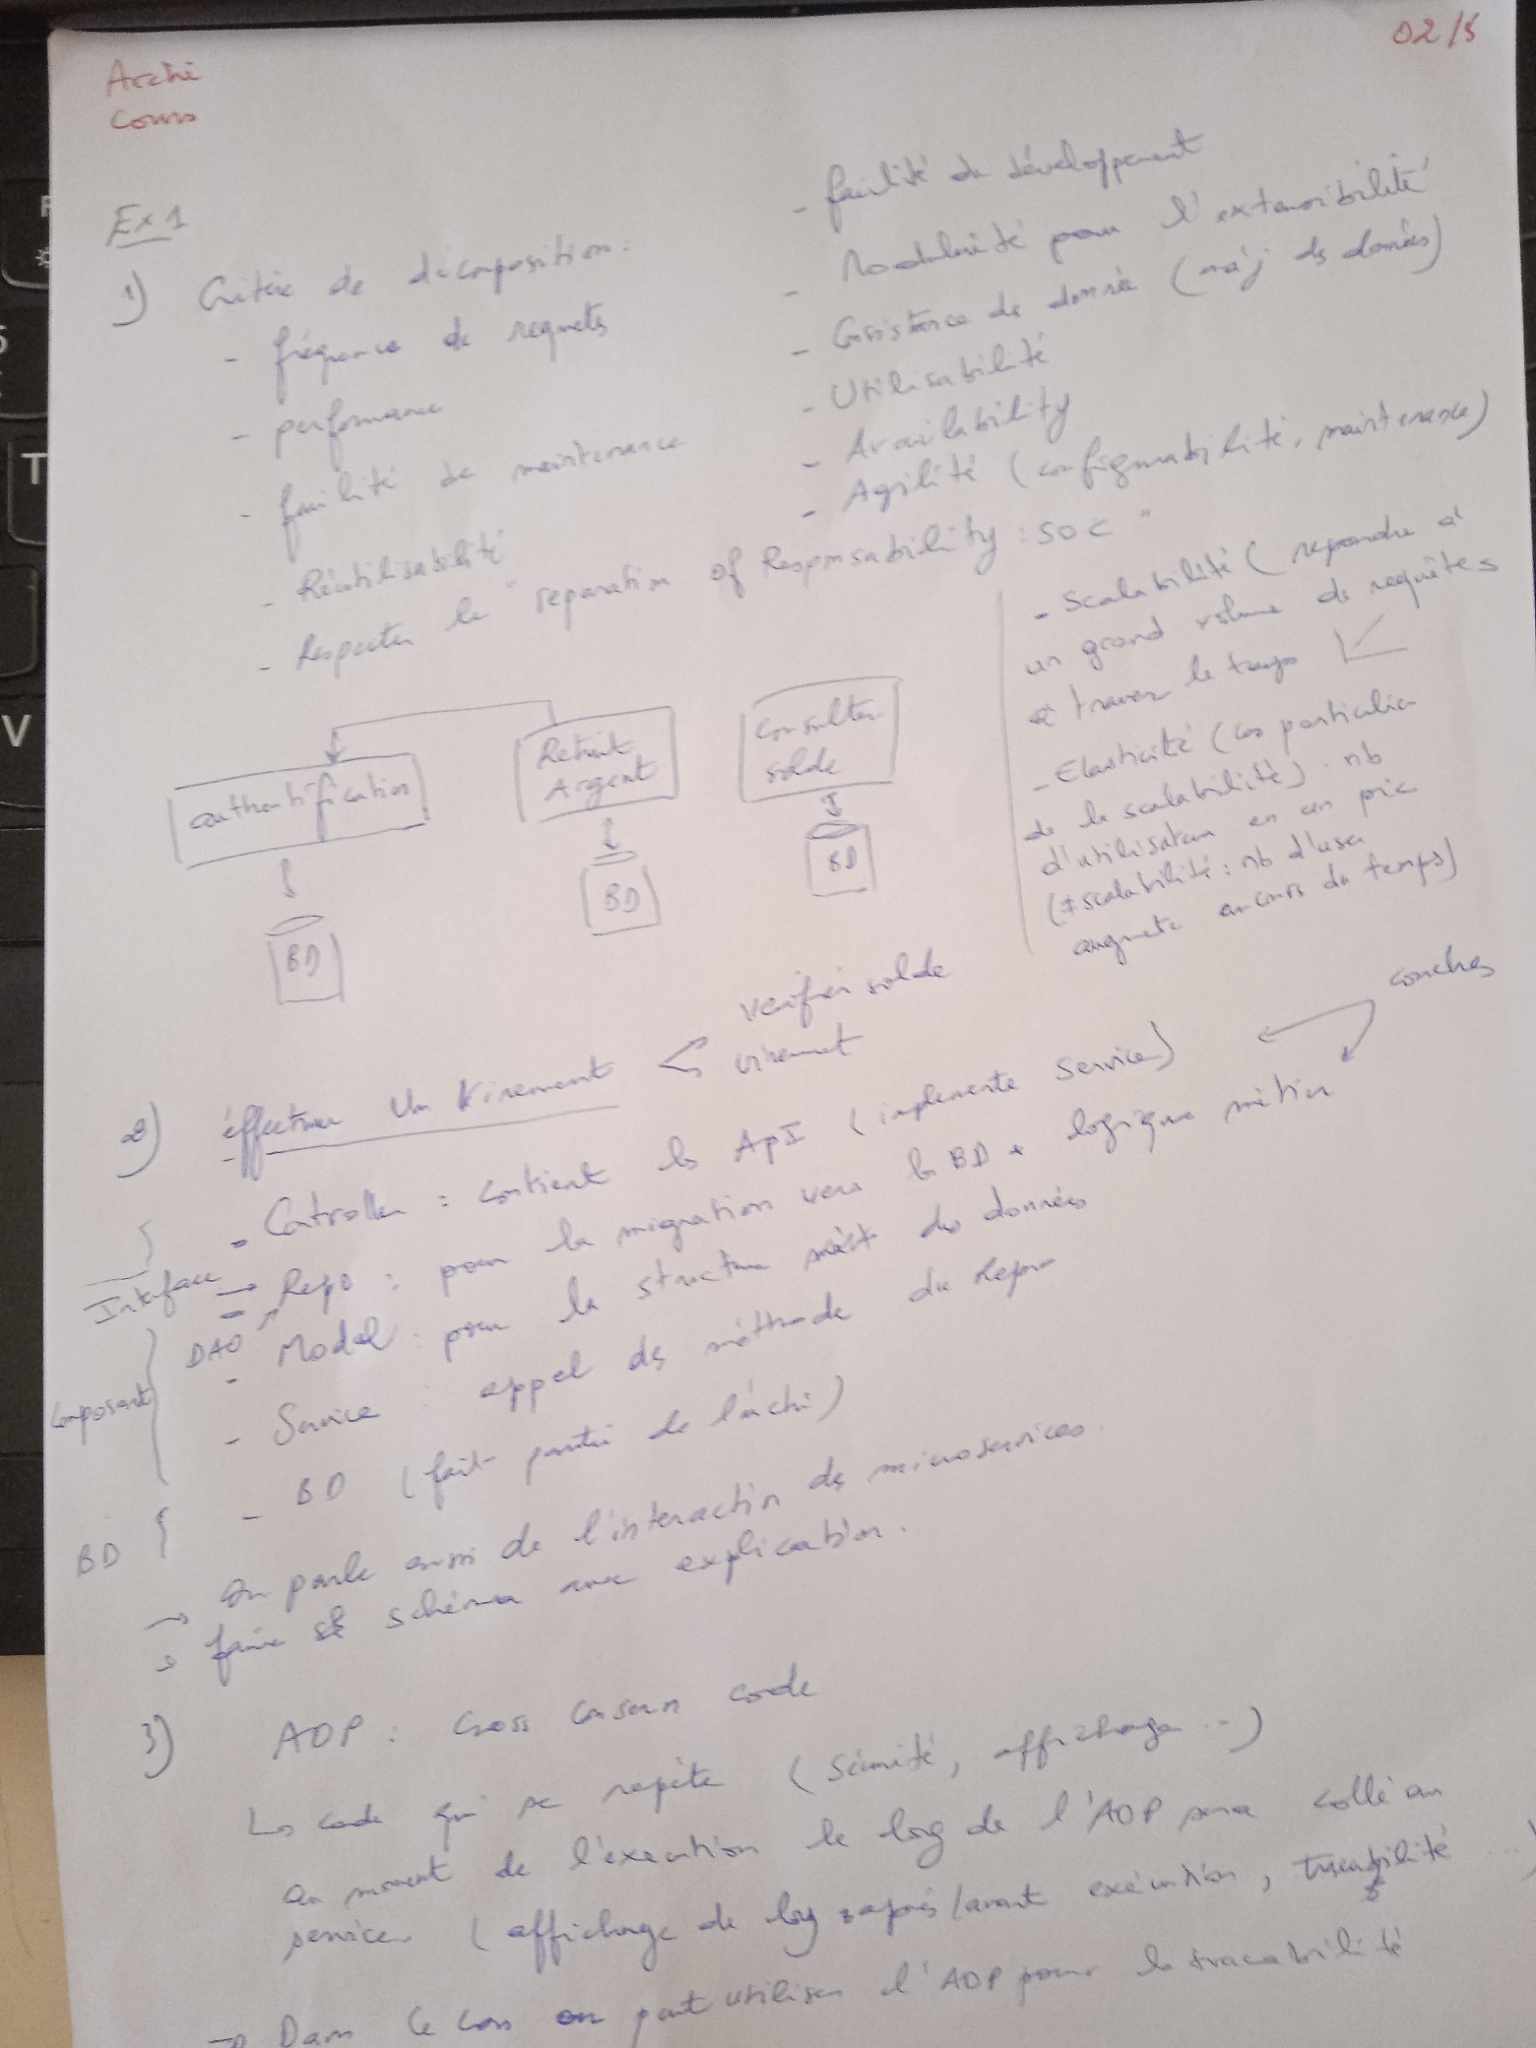 Archi
Cours
02/5
Ex 1
1) Critère de décomposition:
- fréquence de requetes
- performance
- facilité de maintenance
- Réutilisabilité
- Respecter le "separation of Responsability : SOC"
- facilité de développement
- Modularité pour l'extensibilité
- Consistance de donnée (màj des données)
- Utilisabilité
- Availability
- Agilité (configurabilité, maintenance)
- Scalabilité (repondre à
un grand volume de requêtes
à travers le temps
- Elasticité (cas particulier
de la scalabilité) : nb
d'utilisateur en un pic
(≠ scalabilité : nb d'user
augmente au cours du temps)
authentification
Retrait
Argent
Consulter
solde
BD
BD
BD
2) éffectuer Un Virement
verifier solde
virement
couches
- Controller : contient les ApI (implemente service)
Interface
- Repo : pour la migration vers la BD + logique métier
DAO
- Model : pour la structure des données
Composant
- Service : appel des méthode du Repo
- BD (fait partie de l'archi)
BD
→ On parle aussi de l'interaction des microservices.
→ faire schéma avec explication.
3) AOP : Cross Consern code
↳ code qui se repète (Sécurité, affichage ..)
au moment de l'éxecution le log de l'AOP sera collé au
service (affichage de log après/avant exécution, traçabilité ...)
→ Dans ce cas on peut utiliser l'AOP pour la tracabilité